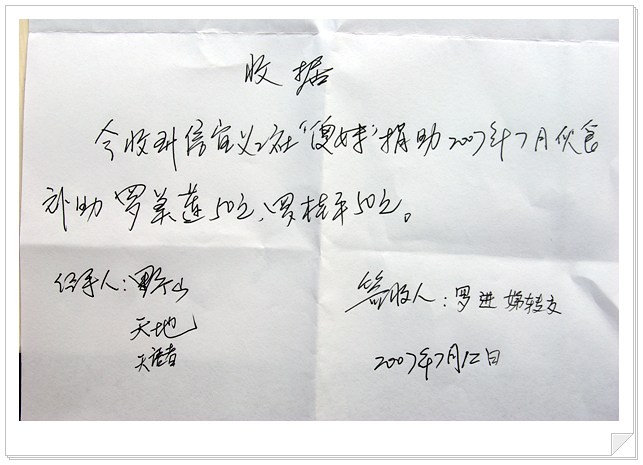 收据
今收到信宜义工社“傻妹”捐助2007年7月伙食
补助 罗美莲50元、罗桂平50元。
经手人:野山
签收人:罗进 娣转交
天地
天语者
2007年7月12日